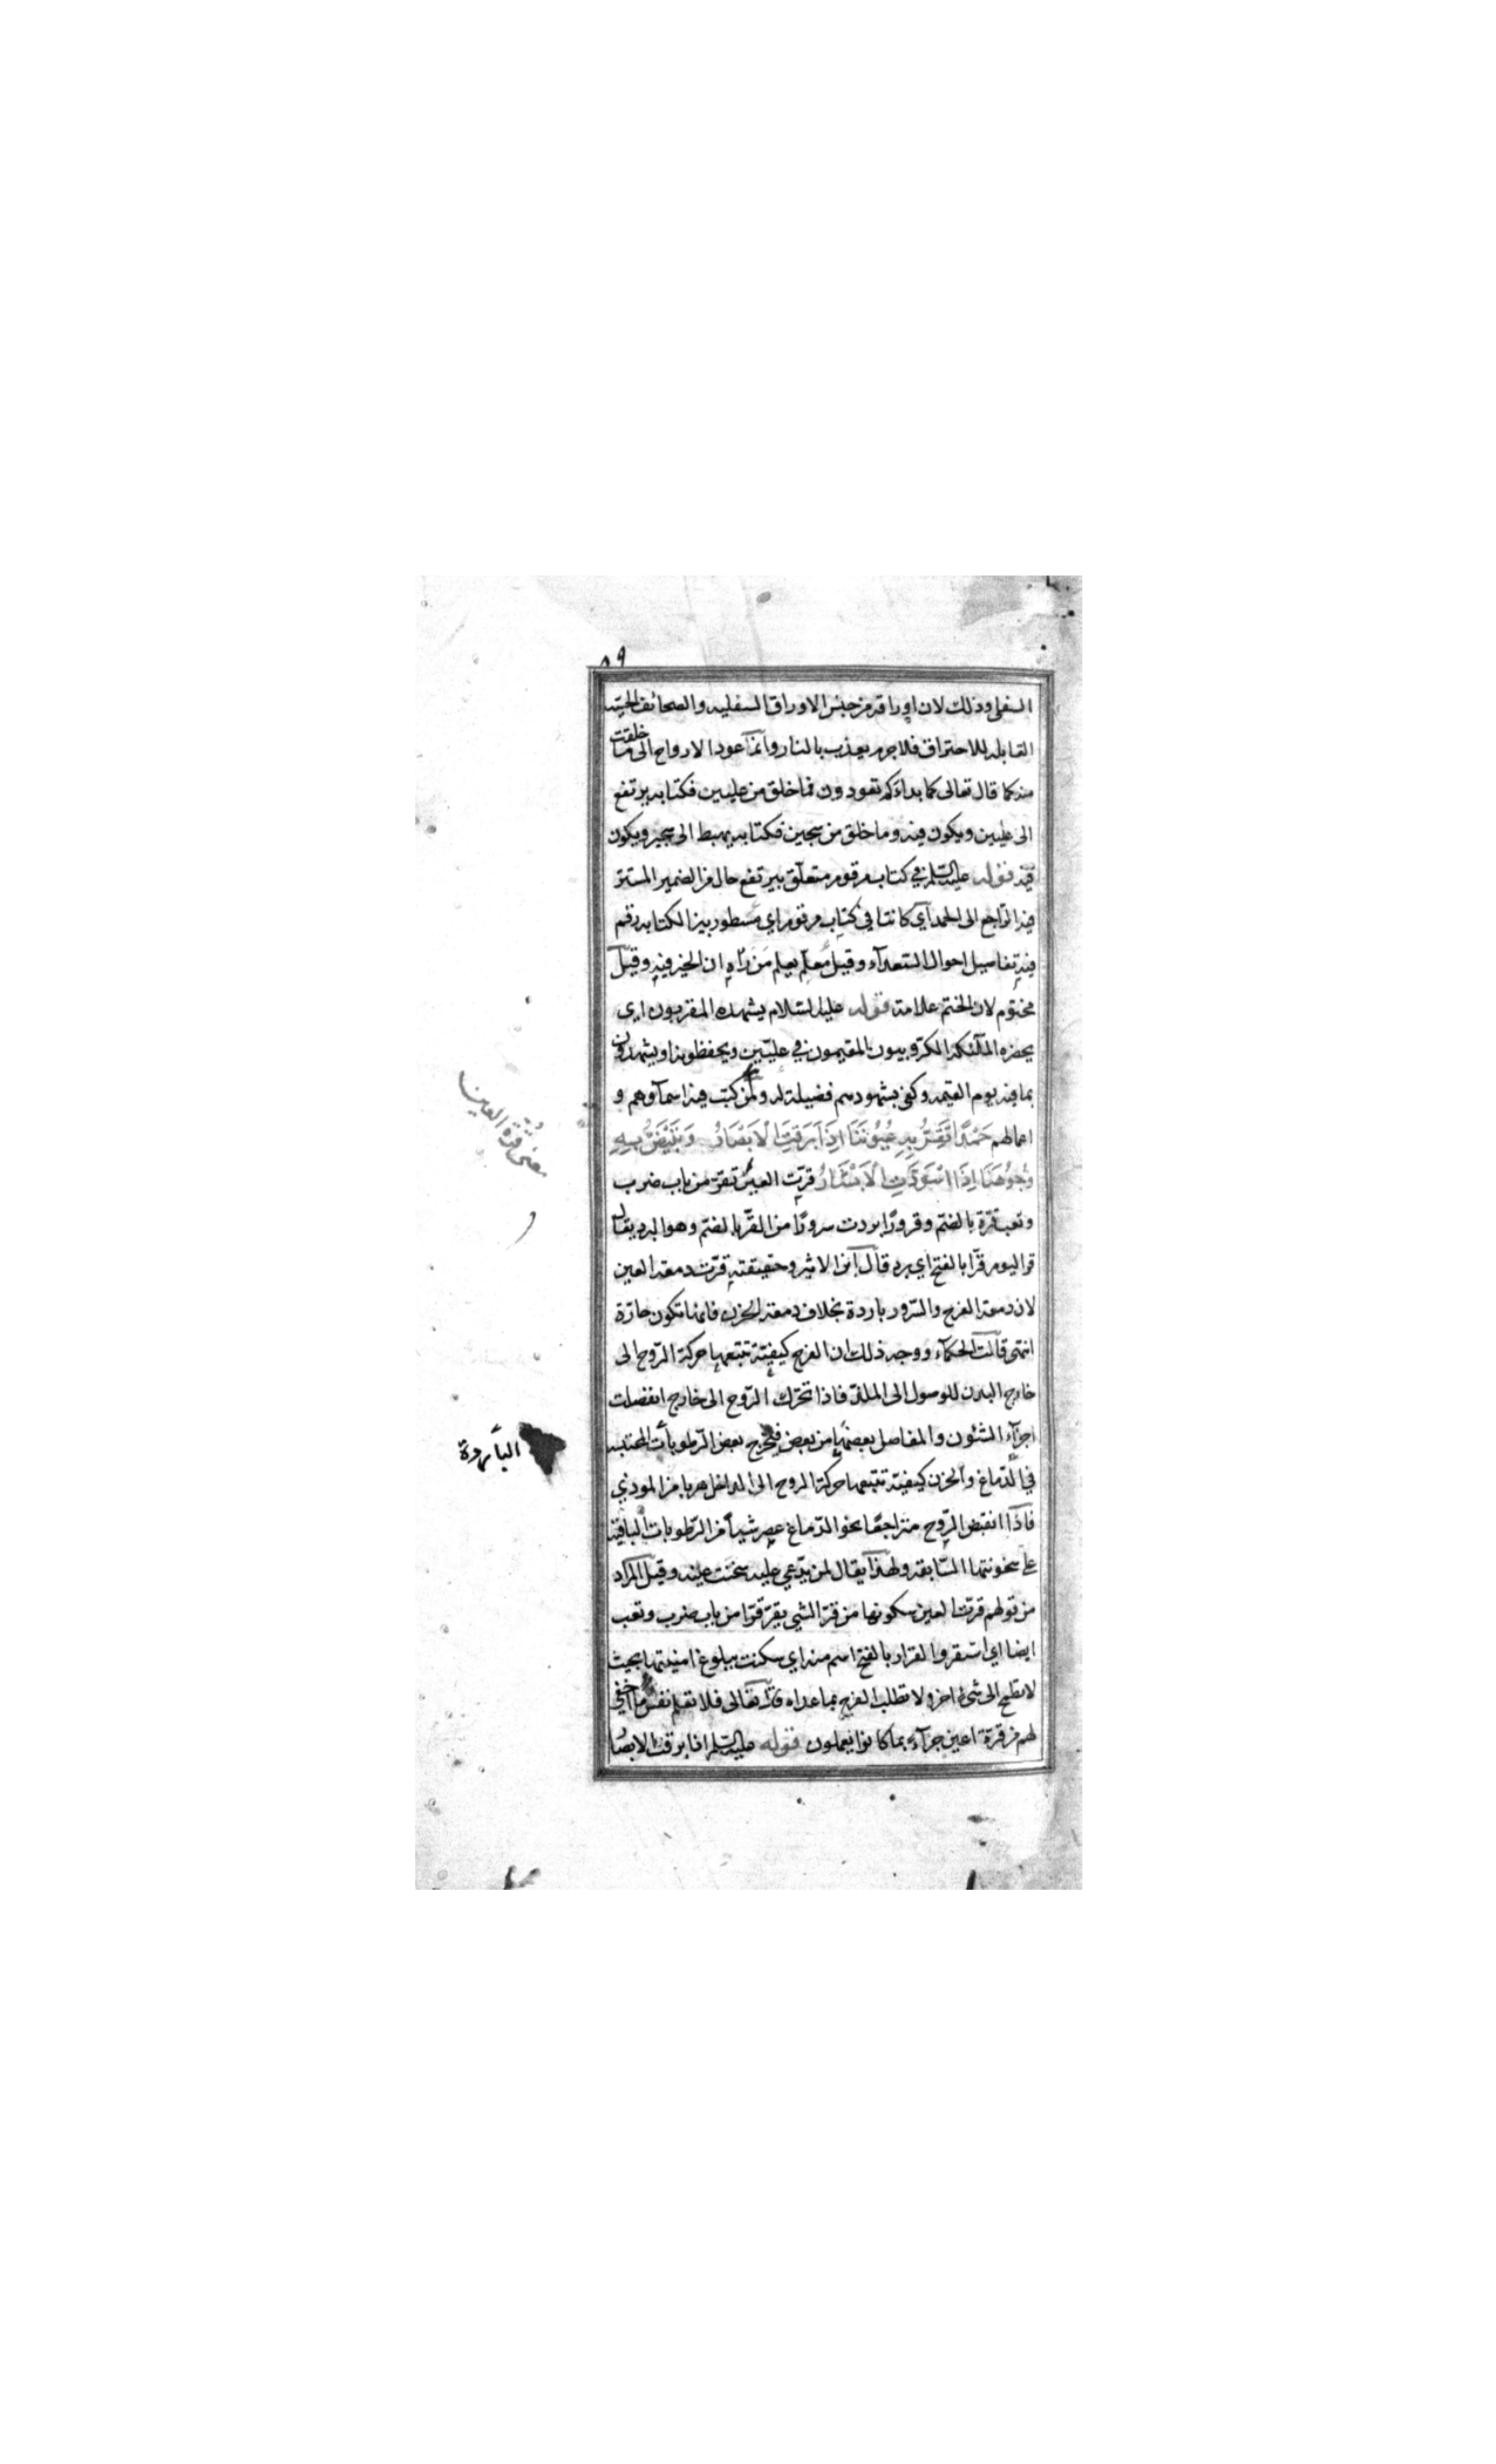 ٥٩
السفلى وذلك لان اوراقه من جنس الاوراق السفليه والصحائف الحسّيّه
القابله للاحتراق فلاجرم يعذب بالنار وانما عود الارواح الى ما خلقت
منه كما قال تعالى كما بداءكم تعودون فما خلق من عليين فكتابه يرتفع
الى عليين ويكون فيه وما خلق من سجين فكتابه يهبط الى سجين ويكون
فيه قوله عليه السّلم في كتاب مرقوم متعلّق بيرتفع حال من الضمير المستتر
فيه الرّاجع الى الحمد اي كائنا في كتاب مرقوم اي مسطور بيّن الكتابه رقم
فيه تفاصيل احوال السّعدآء وقيل مُعلَم يعلم مَن رآه ان الخير فيه وقيل
مختوم لان الختم علامة قوله عليه السّلام يشهده المقربون اي
يحضره الملآئكة الكرّوبيون المقيمون في عليّين ويحفظونه او يشهدون
بما فيه يوم القيمه وكفى بشهودهم فضيلة له ولمن كتب فيه اسمآوهم و
اعمالهم حَمْدًا تَقَرُّ بِهِ عُيُونُنَا اِذَا بَرِقَتِ الْاَبْصَارُ وَتَبْيَضُّ بِهِ
وُجُوهُنَا اِذَا اسْوَدَّتِ الْاَبْشَارُ قرّت العين تقرّ من باب ضرب
وتعب قرّة بالضّم وقرورًا بردت سرورًا من القرّ بالضّم وهو البرد يقال
قر اليوم قرّا بالفتح اي برد قال ابن الاثير وحقيقته قرّت دمعة العين
لان دمعة الفرح والسّرور باردة بخلاف دمعة الحزن فانها تكون حارّة
انتهى قالت الحكمآء ووجه ذلك ان الفرح كيفيّة تتبعها حركة الرّوح الى
خارج البدن للوصول الى الملذّ فاذا تحرّك الرّوح الى خارج انفصلت
اجزآء الشئون والمفاصل بعضها من بعض فيخرج بعض الرّطوبات المحتبسه
في الدّماغ والحزن كيفيّة تتبعها حركة الروح الى الداخل هربا من الموذي
فاذا انقبض الرّوح متراجعًا نحو الدّماغ عصر شيئاً من الرّطوبات الباقية
على سخونتها السّابقه ولهذا يقال لمن يدّعى عليه سخنت عينه وقيل المراد
من قولهم قرّت العين سكونها من قرّ الشي يقرّ قرّا من باب ضرب وتعب
ايضا اي استقر والقرار بالفتح اسم منه اي سكنت ببلوغ امنيتها بحيث
لا تطمح الى شئ اخر ولا تطلب الفرح بما عداه قال تعالى فلا تعلم نفس ما اخفي
لهم من قرّة اعين جزآء بما كانوا يعملون قوله عليه السّلم اذا برقت الابصا
معنى قُرّة العين
الباردة